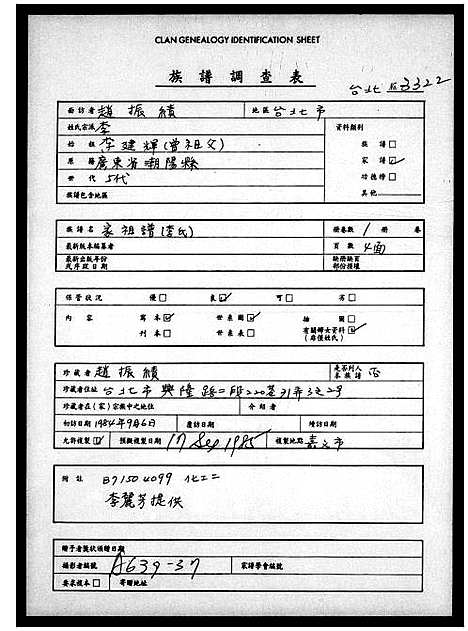 CLAN GENEALOGY IDENTIFICATION SHEET
族譜調查表
台北 3322
面訪者 趙振績 地區 台北市
姓氏宗派 李 資料類別
始祖 李建輝(曾祖父) 族譜 □
原籍 廣東省潮陽縣 家譜 ☑
世代 5代 功德榜 □
族譜包含地區 其他 □
族譜名 家祖譜(李氏) 冊卷數 1 冊 卷
最新版本編纂者 頁數 4面
最新出版年份或序跋日期 缺冊缺頁部份投壞
保管狀況 優 □ 良 ☑ 可 □ 劣 □
內容 寫本 ☑ 世系圖 ☑ 插圖 □
刊本 □ 世系表 □ 有關婦女資料 ☑ (席僅姓氏)
珍藏者 趙振績 是否列入本族譜 否
珍藏者住址 台北市興隆路二段220巷31弄3之2号
珍藏者在(家)宗族中之地位 介紹者
初訪日期 1984年9月6日 複訪日期 續訪日期
允許複製 ☑ 預擬複製日期 17 Sep 1985 複製地點 嘉义市
附註 B7150 4099 化工二
李麗芳提供
贈予者獎狀頒贈日期
攝影者編號 A639-37 家譜學會編號
要求複本 □ 寄贈地址